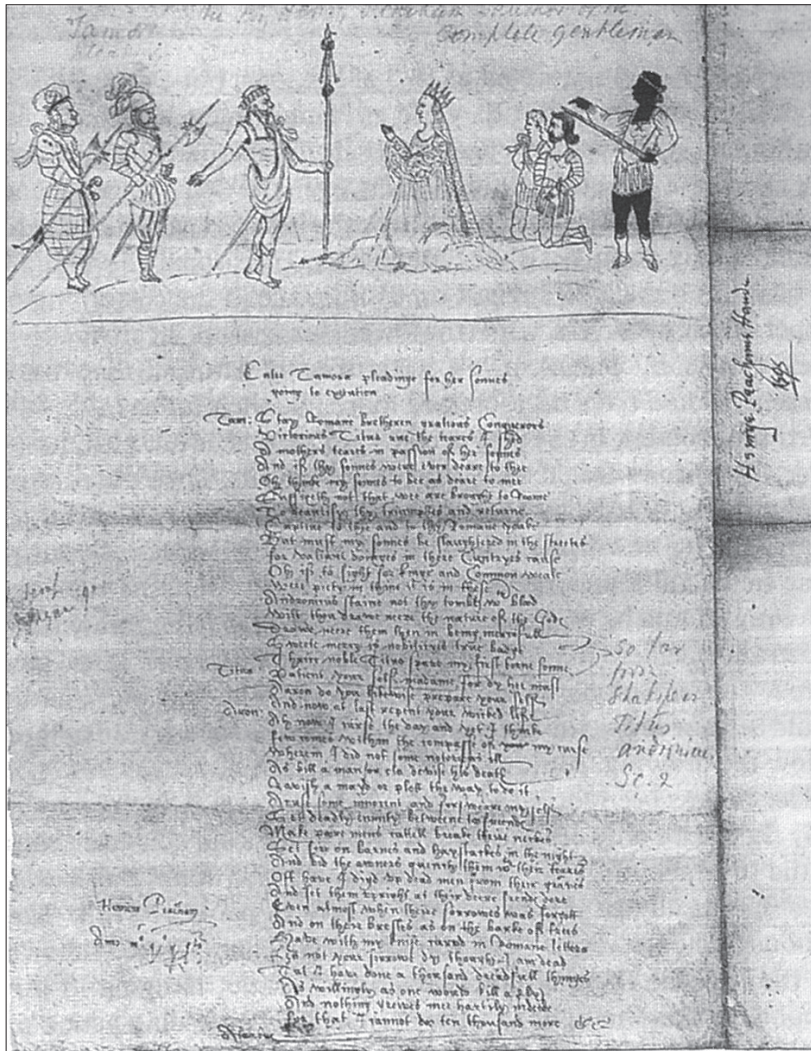 complete gentleman
Enter Tamora pleadinge for her sonnes
going to execution
Tam: Stay Romane bretheren gratious Conquerors
Victorious Titus rue the teares I shed
A mothers teares in passion of her sonnes
And if thy sonnes were ever deare to thee
Oh thinke my sonnes to bee as deare to mee
Suffizeth not that wee are brought to Roome
To beautify thy triumphes and returne
Captiue to thee and to thy Romane yoake
But must my sonnes be slaughtered in the streetes
for valiant doinges in there Cuntryes cause
Oh if to fight for kinge and Common weale
Were piety in thine it is in these
Andronicus staine not thy tombe wth blood
Wilt thou drawe neere the nature of the Gods
Drawe neere them then in being mercifull
Sweete mercy is nobilityes true badge
Thrice noble Titus spare my first borne sonne
Titus: Patient your self madame for dy hee must
Aaron do you likewise prepare your self
And now at last repent your wicked life
Aron: Ah now I curse the day and yet I thinke
few comes within the compasse of my curse
Wherein I did not some notorious ill
As kill a man or els devise his death
Ravish a mayd or plott the way to do it
Acuse some innocent and forsweare myself
Set deadly enmity betweene too freendes
Make poore mens cattell breake theire neckes
Set fire on barnes and haystackes in the night
And bid the owners quench them wth their teares
Oft have I digd vp dead men from their graves
And set them vpright at their deere frendes dore
Even almost when theire sorrowes was forgott
And on their brestes as on the barke of trees
Have with my knife carvd in Romane letters
Lett not your sorrowe dy though I am dead
Tut I have done a thousand dreadfull thinges
As willingly as one would kill a fly
And nothing greives mee hartily indeede
for that I cannot doo ten thousand more &c
Alarbus
So far
from
Shakspear
Titus
Andronicus
Sc. 2
Henricus Peacham
Anno
Henrye Peachams Hande
1595